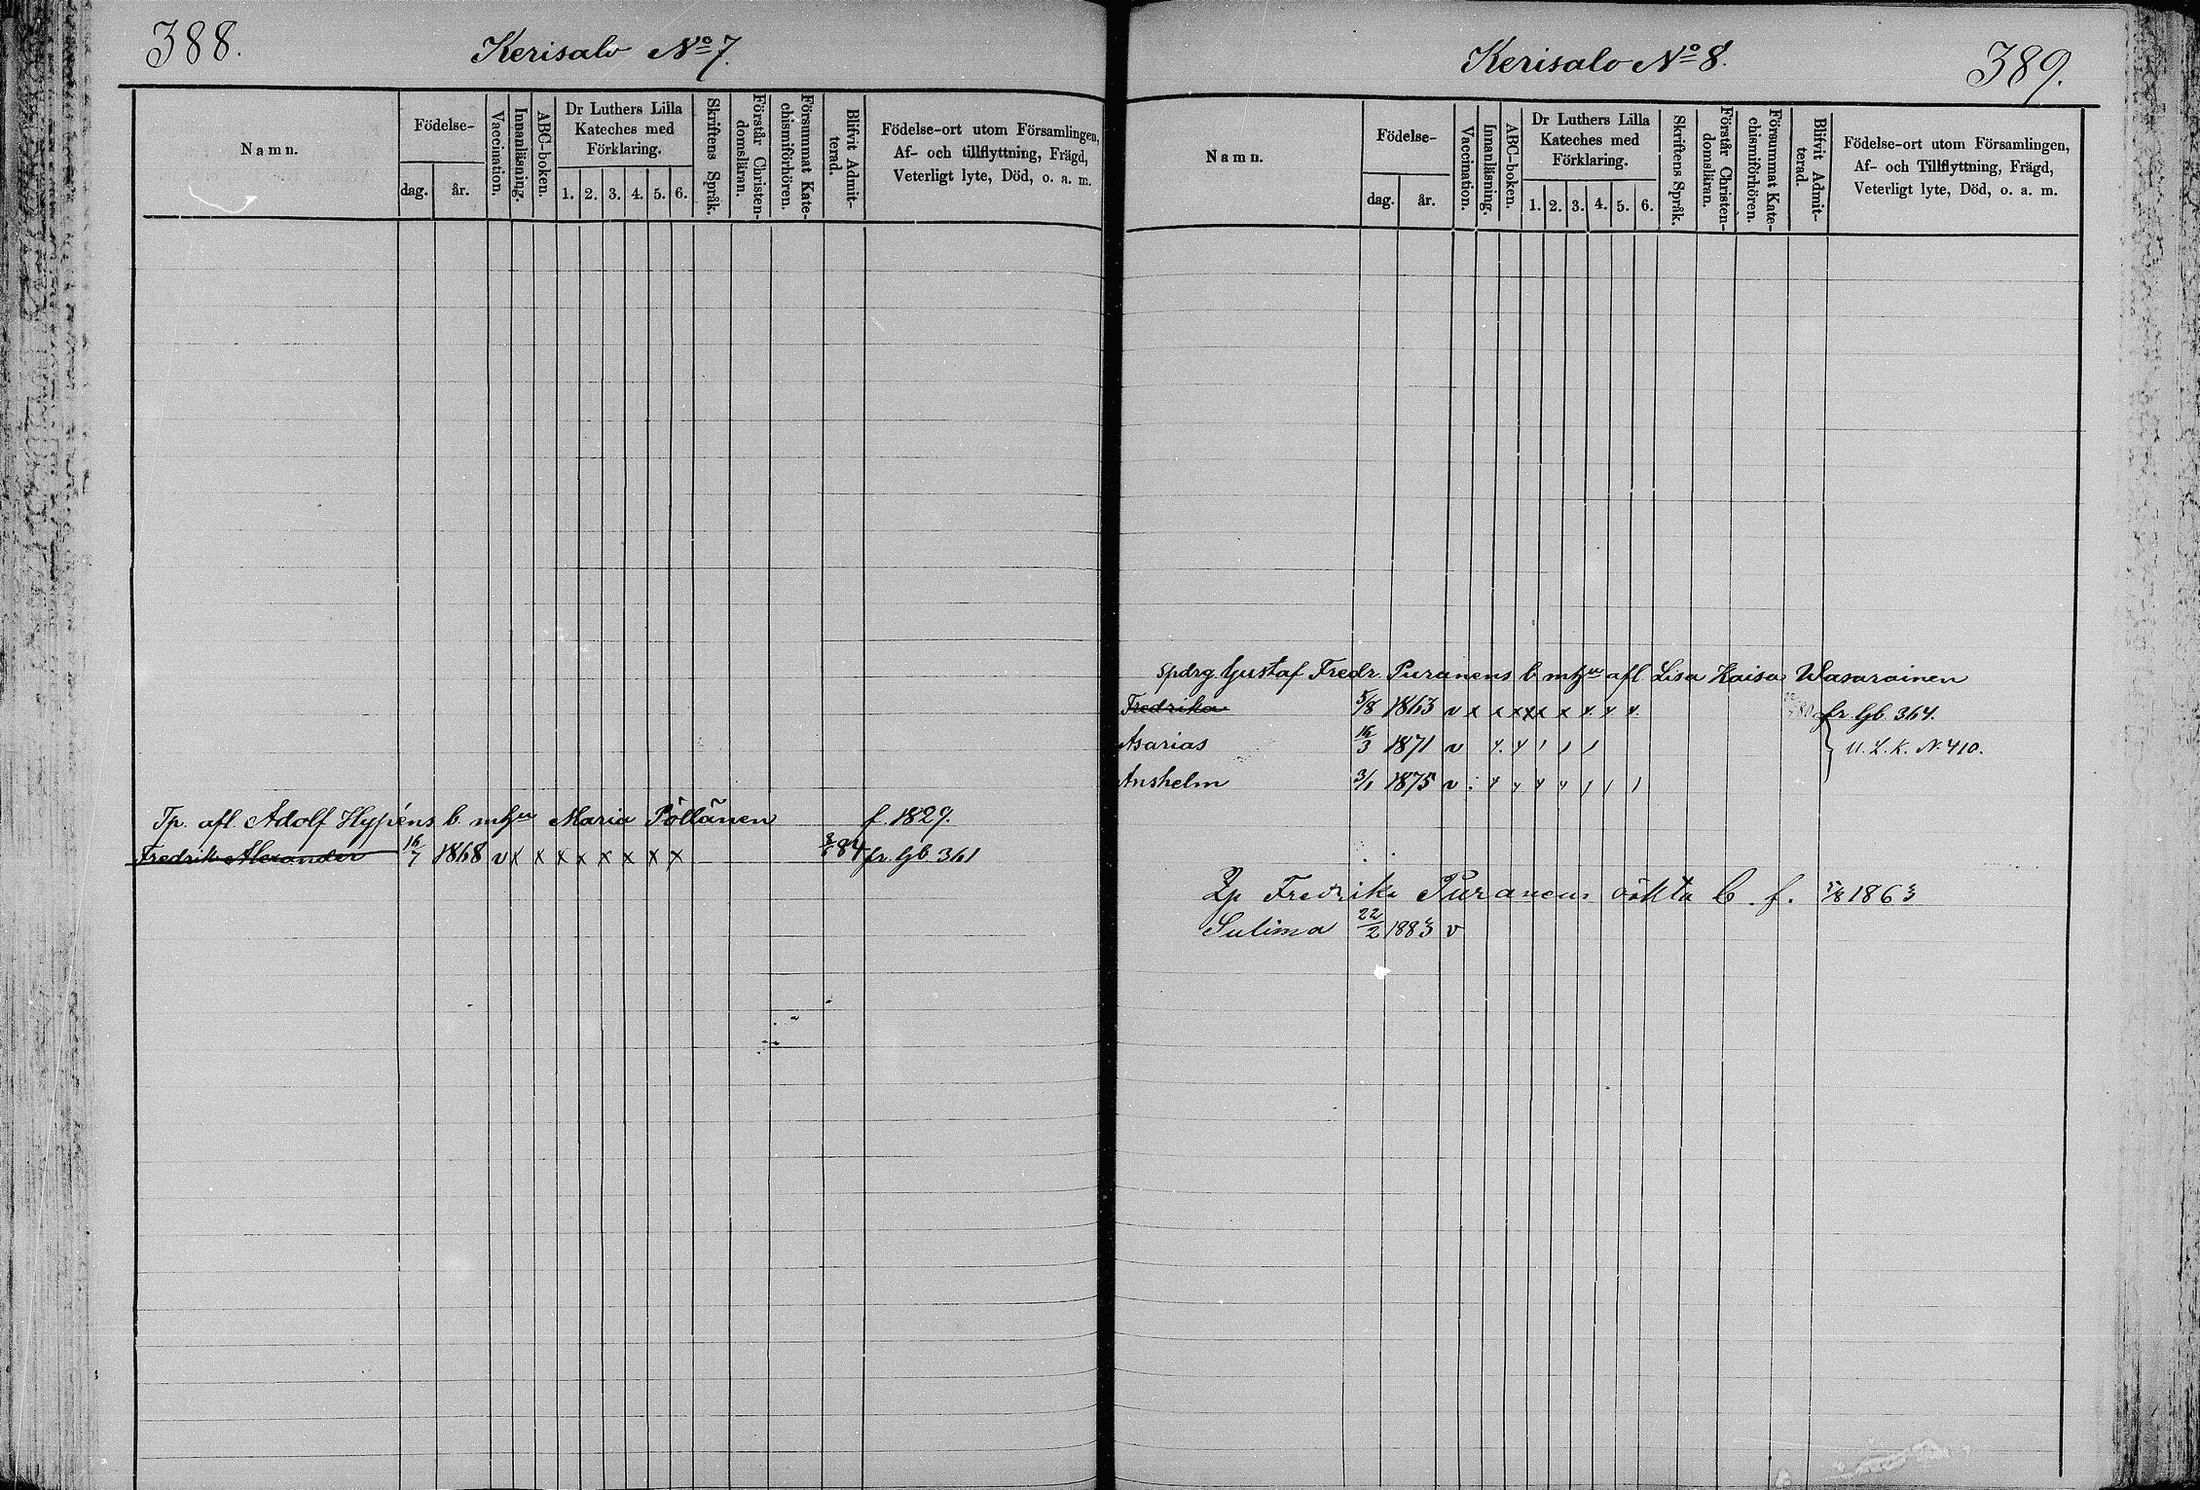 388.
Kerisalo No 7.
Namn.
Födelse-
dag.
år.
Vaccination.
Innanläsning.
ABC-boken.
Dr Luthers Lilla
Kateches med
Förklaring.
1. 2. 3. 4. 5. 6.
Skriftens Språk.
Förstår Christen-
domsläran.
Försummat Kate-
chismiförhören.
Blifvit Admit-
terad.
Födelse-ort utom Församlingen,
Af- och tillflyttning, Frägd,
Veterligt lyte, Död, o. a. m.
Tp. afl. Adolf Hypéns b. Maria Pöllänen f. 1829.
Fredrik Alexander 16/7 1868 v x x x x x x x x 84 fr. Gb 361
Kerisalo No 8.
389.
Namn.
Födelse-
dag.
år.
Vaccination.
Innanläsning.
ABC-boken.
Dr Luthers Lilla
Kateches med
Förklaring.
1. 2. 3. 4. 5. 6.
Skriftens Språk.
Förstår Christen-
domsläran.
Försummat Kate-
chismiförhören.
Blifvit Admit-
terad.
Födelse-ort utom Församlingen,
Af- och Tillflyttning, Frägd,
Veterligt lyte, Död, o. a. m.
Spdrg. Gustaf Fredr. Puranens b afl Lisa Kaisa Wasarainen
Fredrika 5/8 1863 v x x x x x x x x x fr. Gb. 364.
Asarias 16/3 1871 v U. L. K. N. 410.
Anshelm 3/1 1875 v
Fredrika Puranens oäkta b. f. 5/8 1863
Sulima 22/2 1883 v